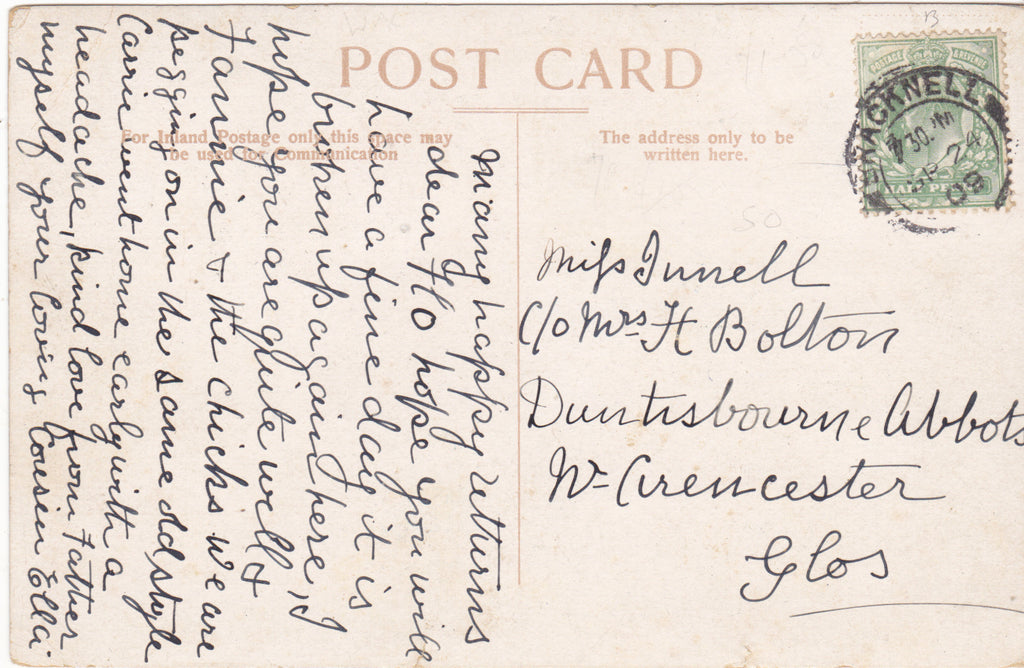 POST CARD
For Inland Postage only this space may
be used for Communication
The address only to be
written here.
POSTAGE REVENUE
HALF PENNY
BRACKNELL
7 30 PM
SP 24
09
Many happy returns
dear Flo hope you will
have a fine day it is
brighten up again here, I
hope you are quite well &
Fannie & the chicks we are
pegging on in the same old style
Carrie went home early with a
headache, kind love from Father
myself your loving Cousin Ella.
Miss Tunnell
c/o Mrs H Bolton
Duntisbourne Abbots
Nr Cirencester
Glos